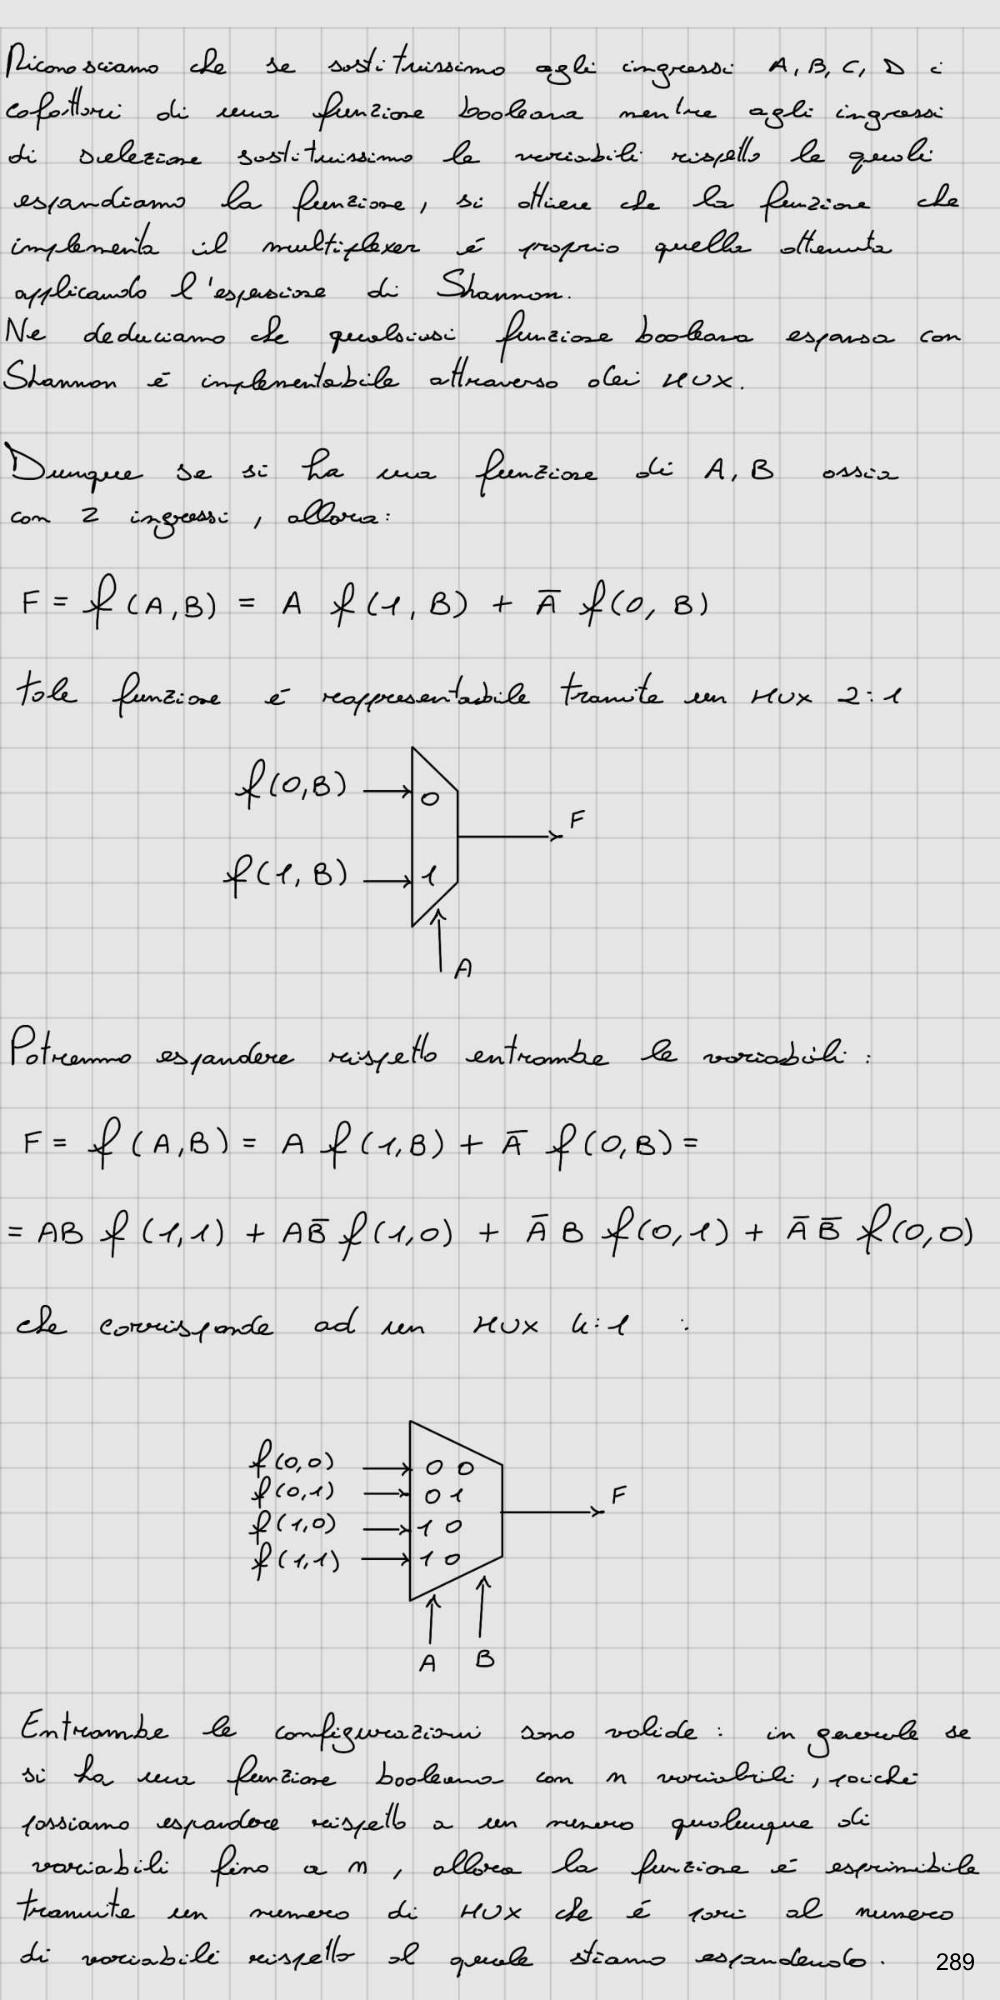 Riconosciamo che se sostituissimo agli ingressi A, B, C, D i
cofattori di una funzione booleana mentre agli ingressi
di selezione sostituissimo le variabili rispetto le quali
espandiamo la funzione, si ottiene che la funzione che
implementa il multiplexer é proprio quella ottenuta
applicando l'espansione di Shannon.
Ne deduciamo che qualsiasi funzione booleana espansa con
Shannon é implementabile attraverso dei MUX.
Dunque se si ha una funzione di A, B ossia
con 2 ingressi, allora:
F = f(A,B) = A f(1,B) + Ā f(0, B)
tale funzione é rappresentabile tramite un MUX 2:1
f(0,B) 0
F
f(1,B) 1
A
Potremmo espandere rispetto entrambe le variabili:
F = f(A,B) = A f(1,B) + Ā f(0,B) =
= AB f(1,1) + AB̄ f(1,0) + Ā B f(0,1) + Ā B̄ f(0,0)
che corrisponde ad un MUX 4:1 :
f(0,0) 0 0
f(0,1) 0 1
F
f(1,0) 1 0
f(1,1) 1 0
A B
Entrambe le configurazioni sono valide: in generale se
si ha una funzione booleana con n variabili, poiché
possiamo espandere rispetto a un numero qualunque di
variabili fino a n, allora la funzione é esprimibile
tramite un numero di MUX che é pari al numero
di variabili rispetto al quale stiamo espandendo. 289